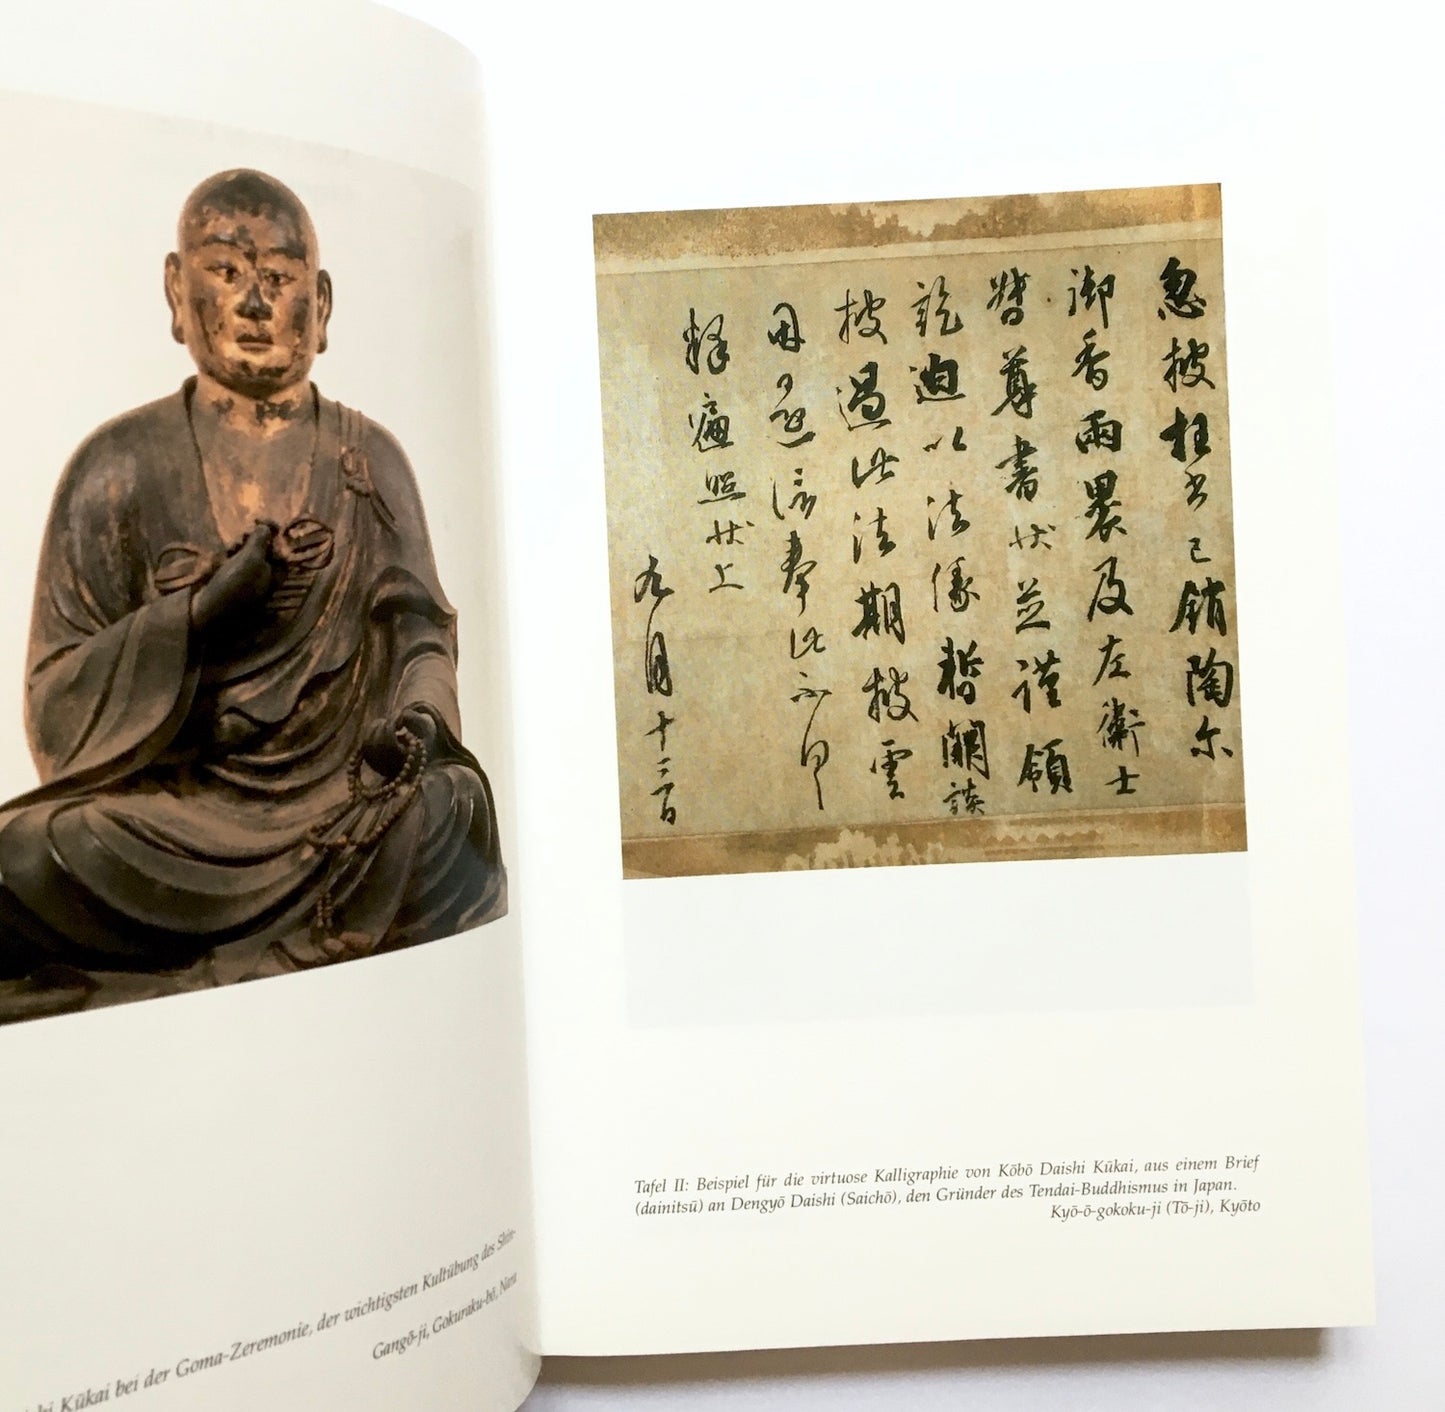 Kūkai bei der Goma-Zeremonie, der wichtigsten Kultübung des Shin-
Gangō-ji, Gokuraku-bō, Nara
忽披枉書已銷陶尓
御香兩裹及左衛士
督尊書状並謹領
訖迫以法縁暫闕談
披過此法期披雲
因還信奉此不具
釋遍照状上
九月十三日
Tafel II: Beispiel für die virtuose Kalligraphie von Kōbō Daishi Kūkai, aus einem Brief
(dainitsū) an Dengyō Daishi (Saichō), den Gründer des Tendai-Buddhismus in Japan.
Kyō-ō-gokoku-ji (Tō-ji), Kyōto